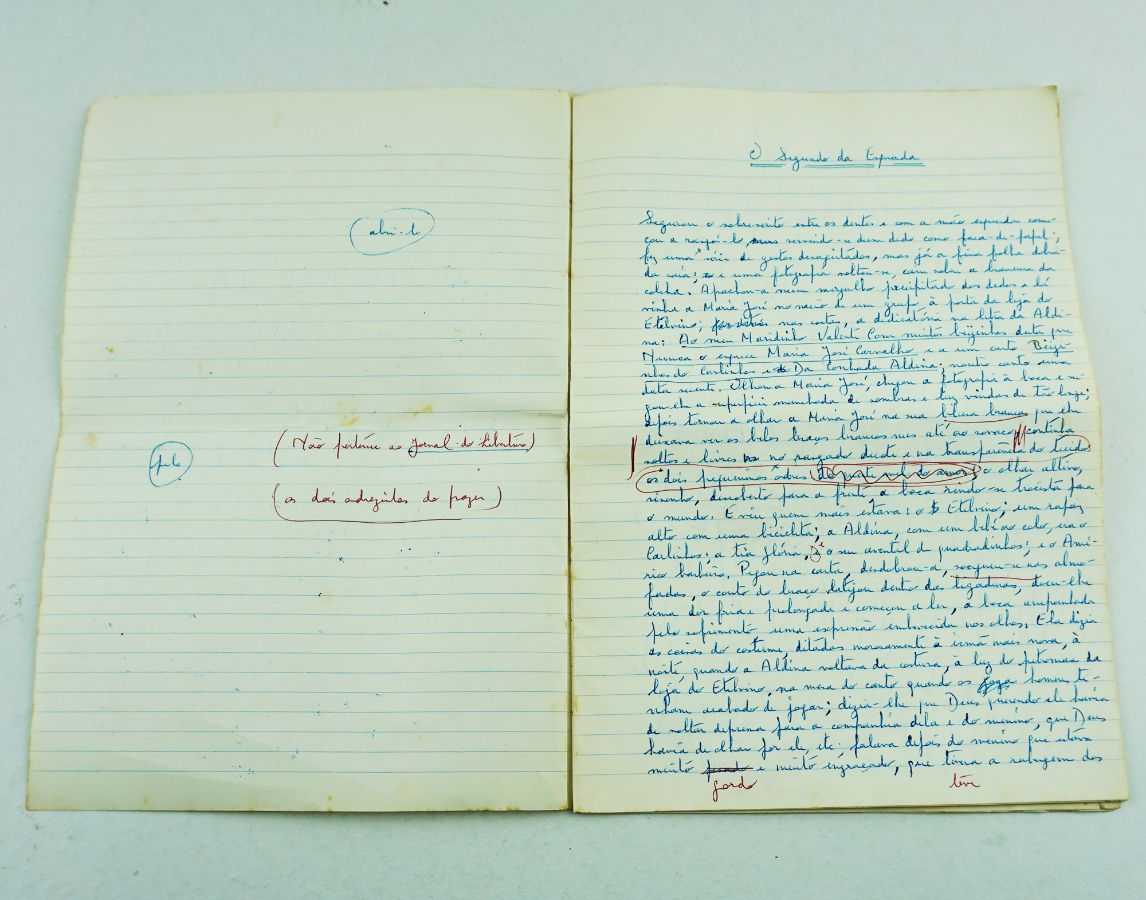 abri-lo
pelo
(Não pertence ao Jornal do
(os dois odrezitos do prazer)
O Segundo da Esquerda
Segurou o sobrescrito entre os dentes e com a mão esquerda come-
çou a rasgá-lo, servindo-se dum dedo como faca-de-papel;
fez uma série de gestos desajeitados, mas já a fina folha dobra-
da saía; e uma fotografia soltou-se, caiu sobre a brancura da
colcha. Apachou-a num mergulho precipitado dos dedos e lá
vinha a Maria José no meio de um grupo à porta da loja do
Etelvino; nas costas, a dedicatória na letra da Aldi-
na: Ao meu Maridinho Valente Com muitos beijinhos desta que
Nunca o esquece Maria José Carvalho e a um canto Beiji-
nhos do Carlinhos e Da Conhada Aldina; noutro canto uma
data recente. Olhou a Maria José, chegou a fotografia à boca e
a superfície manchada de sombras e luz vindas de tão longe;
depois tornou a olhar a Maria José na sua blusa branca que
deixava ver os belos braços brancos nus até ao sovaco, continha
soltos e livres no rasgado decote e na transparência do tecido
os dois pequeninos odres do o olhar altivo,
risonho, descoberto para a frente, a boca rindo-se trocista para
o mundo. E viu quem mais estava: o Etelvino; um rapaz
alto com uma bicicleta; a Aldina, com um bebé ao colo, era o
Carlinhos; a tia Glória, o seu avental de quadradinhos; e o Amé-
rico barbeiro. Pegou na carta, desdobrou-a, soergueu-se nas almo-
fadas, o coto do braço latejou dentro das ligaduras, deu-lhe
uma dor fria e prolongada e começou a ler, a boca arrepanhada
pelo sofrimento uma expressão embevecida nos olhos. Ela dizia
as coisas do costume, ditadas morosamente à irmã mais nova, à
noite, quando a Aldina voltava da costura, à luz do petromax da
loja do Etelvino, na mesa do canto quando os homens ti-
nham acabado de jogar; dizia-lhe que Deus querendo ele havia
de voltar depressa para a companhia dela e do menino, que Deus
havia de olhar por ele, etc; falava depois do menino que estava
muito e muito engraçado, que tivera a rabugem dos
gordo
teve